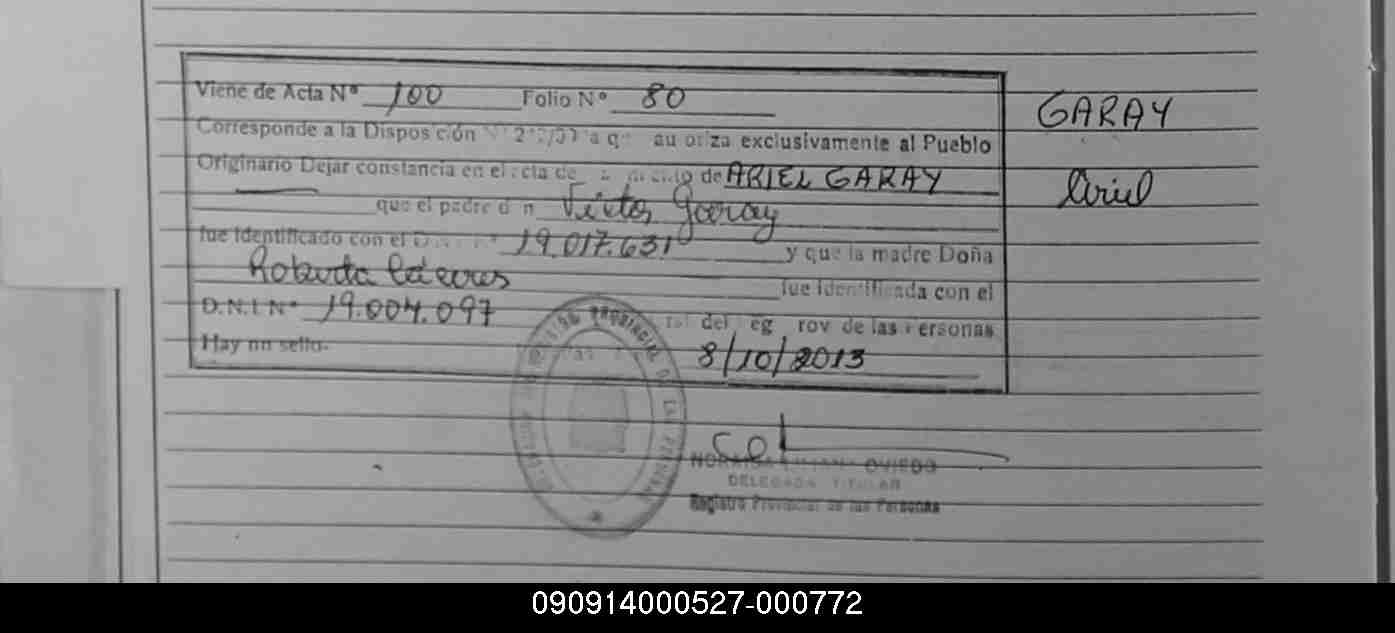 Viene de Acta Nº 100 Folio Nº 80
Corresponde a la Disposición que autoriza exclusivamente al Pueblo
Originario Dejar constancia en el acta de de ARIEL GARAY
que el padre don Victor Garay
fue identificado con el Nº 19.017.631 y que la madre Doña
Roberta fue identificada con el
D.N.I. Nº 19.004.097 del Reg Prov de las Personas
Hay un sello. 8/10/2013
GARAY
Ariel
OVIEDO
DELEGADA TITULAR
Registro Provincial de las Personas
090914000527-000772